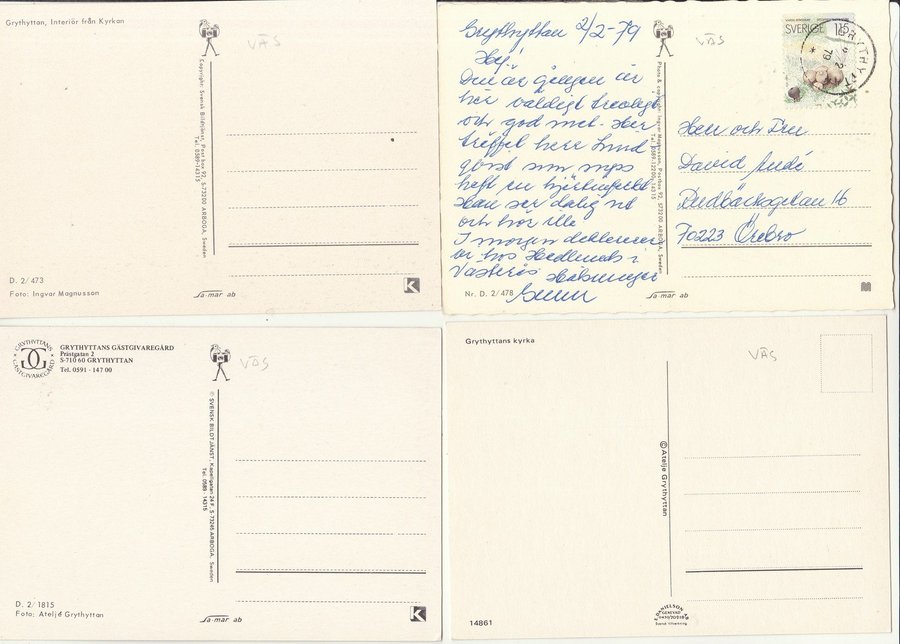 Grythyttan, Interiör från Kyrkan
VÄS
Copyright: Svensk Bildtjänst, Post box 92, S-73200 ARBOGA, Sweden
Tel. 0589-14315
D. 2/473
Foto: Ingvar Magnusson
Sa-mar ab
K
Grythyttan 2/2-79
Hej!
Den är gången är
här väldigt treoligt
och god mat. Her
träffat herr Lund
qvist som nyss
haft en hjärtinfarkt
Han ser dålig ut
och hör illa
I morgon
är hos Hedlunds i
Västerås Hälsningar
Gunn
Nr. D. 2/478
VÄS
Foto & copyright: Ingvar Magnusson, Postbox 92, 573200 ARBOGA, Sweden
Tel. 0589-12200, 14315
Sa-mar ab
SVERIGE 115
GRYTHYTTAN
2 2
79
Herr och Fru
David
Rudbäcksgatan 16
70223 Örebro
GRYTHYTTANS GÄSTGIVAREGÅRD
GRYTHYTTANS GÄSTGIVAREGÅRD
Prästgatan 2
S-710 60 GRYTHYTTAN
Tel. 0591 - 147 00
VÄS
© SVENSK BILDTJÄNST, Kapellgatan 24 F, S 73245 ARBOGA, Sweden
Tel. 0589 - 14315
D. 2/1815
Foto: Ateljé Grythyttan
Sa-mar ab
K
Grythyttans kyrka
VÄS
© Atelje Grythyttan
14861
E. DANIELSON AB
GENEVAD
0430/70018
Svensk tillverkning